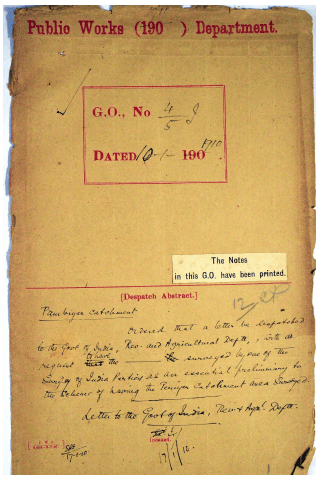 Public Works (190 ) Department.
G.O., No 4/5 I
DATED 10-1- 190 1910
The Notes
in this G.O. have been printed.
[Despatch Abstract.]
Pambiyar Catchment
Ordered that a letter be despatched
to the Govt of India, Rev. and Agricultural Deptt, with a
request to have the surveyed by one of the
Survey of India Parties as an essential preliminary to
the Scheme of having the Periyar Catchment area surveyed.
Letter to the Govt of India, Rev & Agrl Deptt.
Issued.
17/1/10.